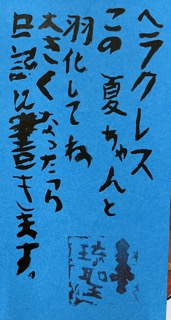 ヘラクレス
この夏ちゃんと
羽化してね
大きくなったら
日記に書きます。